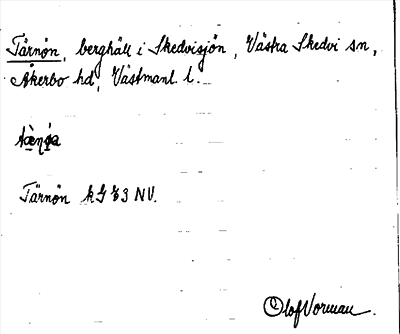 Tärnön, berghäll i Skedvisjön, Västra Skedvi sn,
Åkerbo hd, Västmanl. l.
Tärnön kG 33 NV.
Olof Vorman.